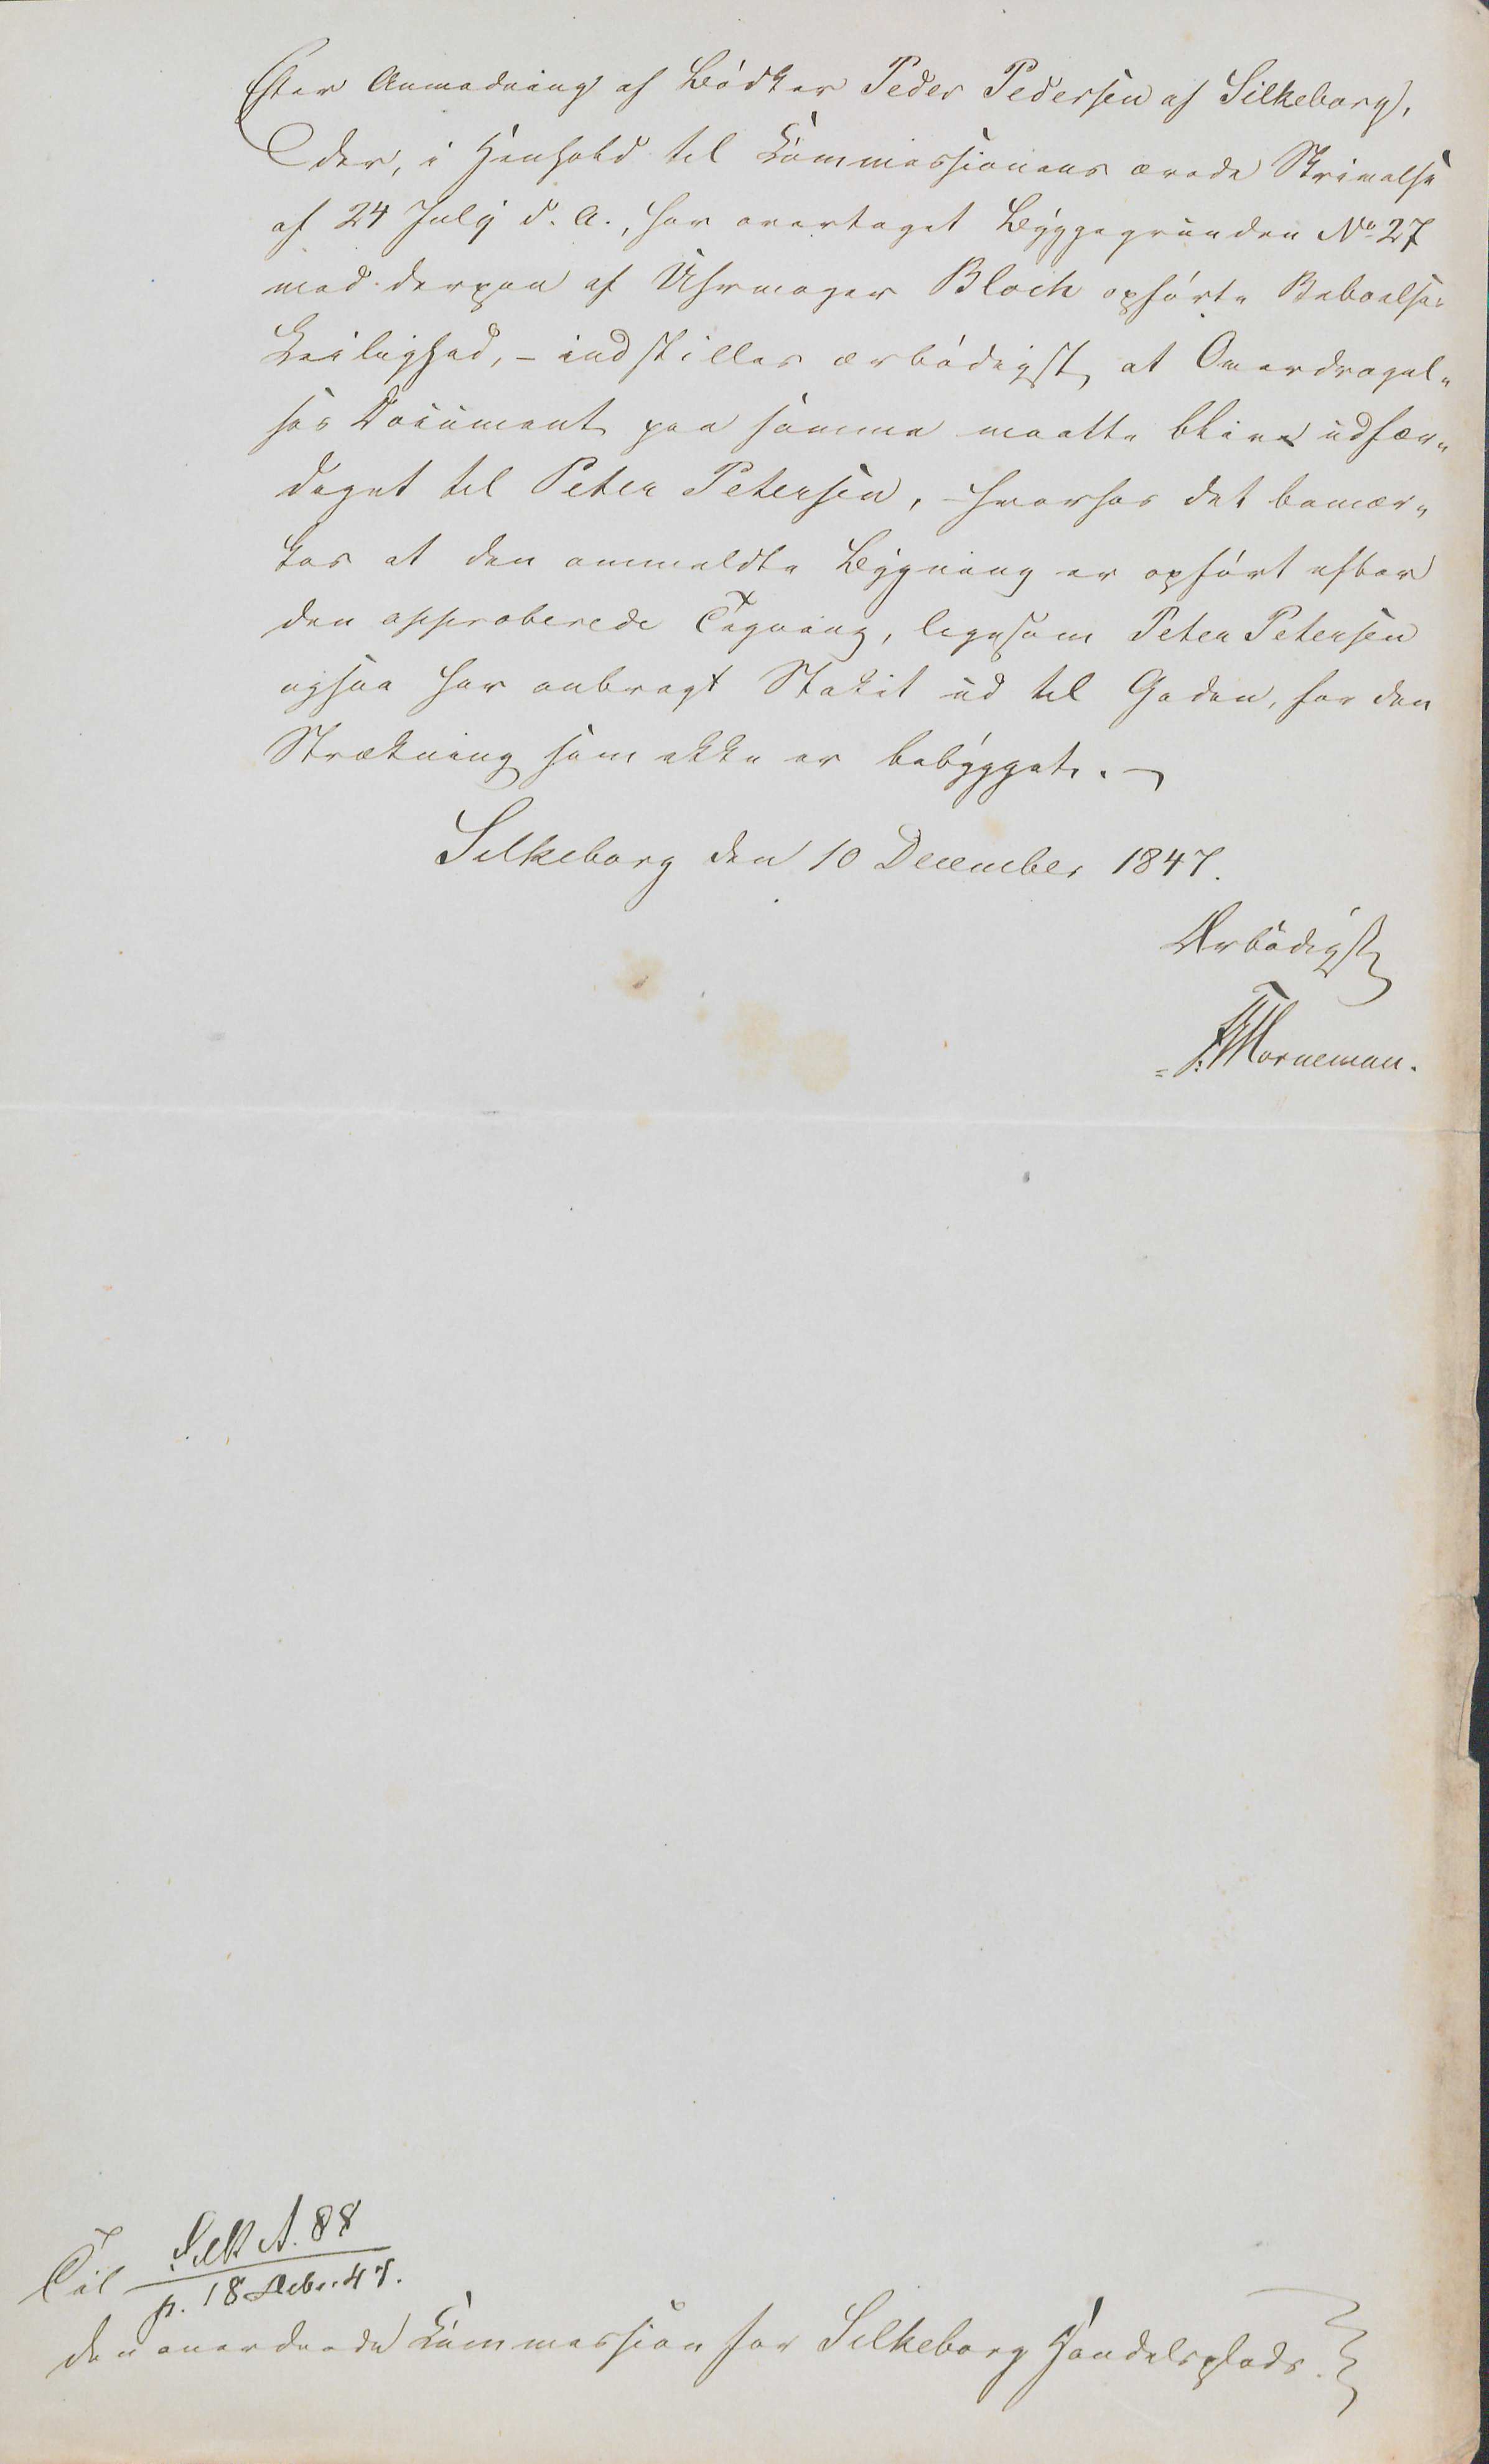 Efter Anmodning af Bødker Peder Pedersen af Silkeborg,
der, i Henhold til Commissionens ærede Skrivelse
af 24 July d. A., har overtaget Byggegrunden No 27
med derpaa af Uhrmager Bloch opførte Beboelses
Leilighed, – indstilles ærbødigst, at Overdragel„
ses Document paa samme maatte blive udfær„
diget til Peter Petersen, – hvorhos det bemær„
kes at den anmeldte Bygning er opført efter
den approberede Tegning, ligesom Peter Petersen
ogsaa har anbragt Stakit ud til Gaden, for den
Strækning som ikke er bebygget. –
Silkeborg den 10 December 1847.
Ærbødigst
Worneman.
Silk A. 88
p. 18 Decbr. 47.
Til
den anordnede Commission for Silkeborg Handelsplads.